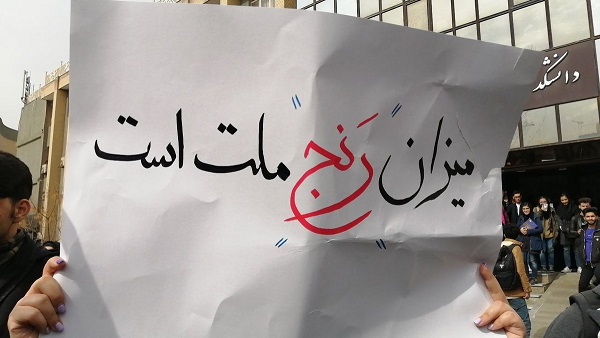 میزان "رَنج" ملت است
دانشکد